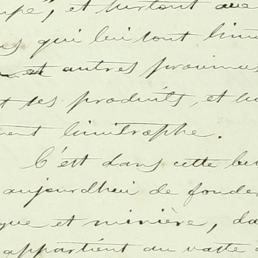 et surtout
qui lui sont
et autres provinces
ses produits, et
limitrophe.
C'est dans cette
aujourdhui de fonder
et minière, da
appartient au vaste